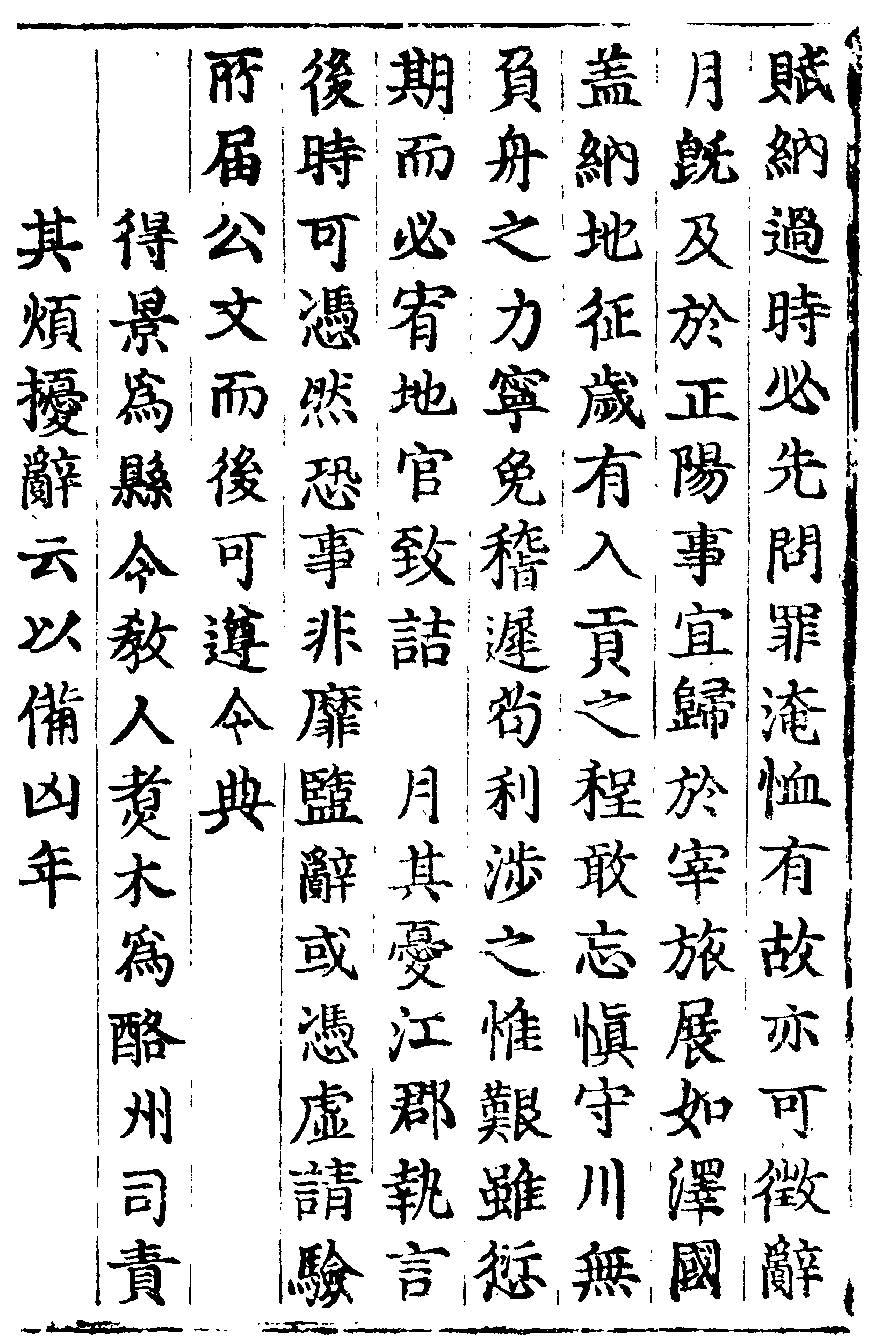 賦納過時必先問罪淹恤有故亦可徵辭
月旣及於正陽事宜歸於宰旅展如澤國
盖納地征歲有入貢之程敢忘愼守川無
負舟之力寧免稽遲苟利涉之惟艱雖愆
期而必宥地官致詰 月其憂江郡執言
後時可憑然恐事非靡盬辭或憑虛請驗
所届公文而後可遵令典
得景為縣令教人煑木為酪州司責
其煩擾辭云以備凶年